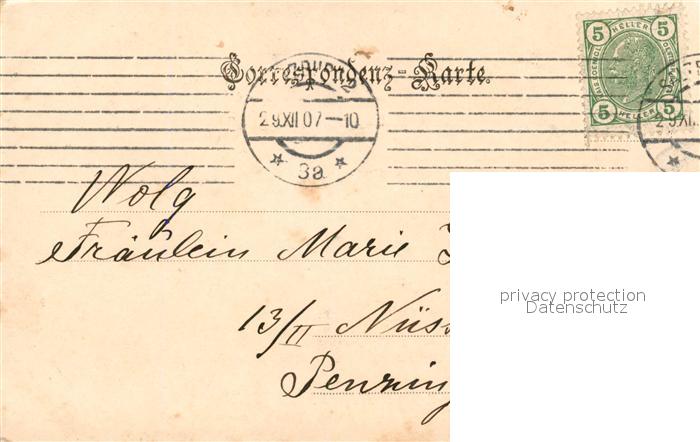 Correspondenz-Karte.
29.XII 07-10
3a
5 HELLER 5
5 HELLER 5
29.XI
Wolg
Fräulein Marie
13/II Nüss
Penzin
privacy protection
Datenschutz